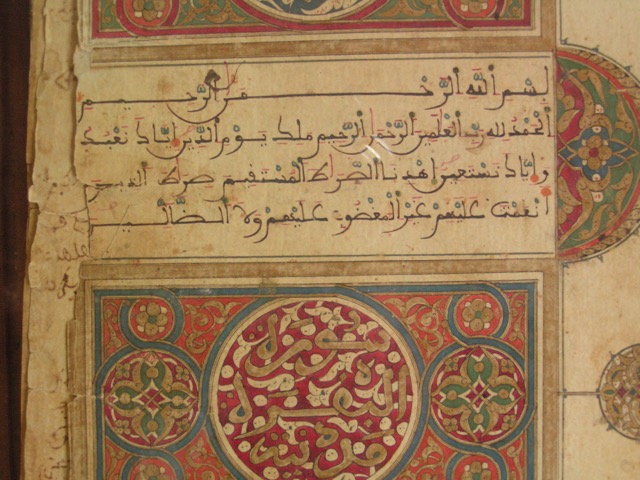 بسم الله الرحمن الرحيم
الحمد لله رب العلمين الرحمن الرحيم ملك يوم الدين إياك نعبد
وإياك نستعين اهدنا الصرط المستقيم صرط الذين
أنعمت عليهم غير المغضوب عليهم ولا الضالين
سورة
البقرة
مدنية